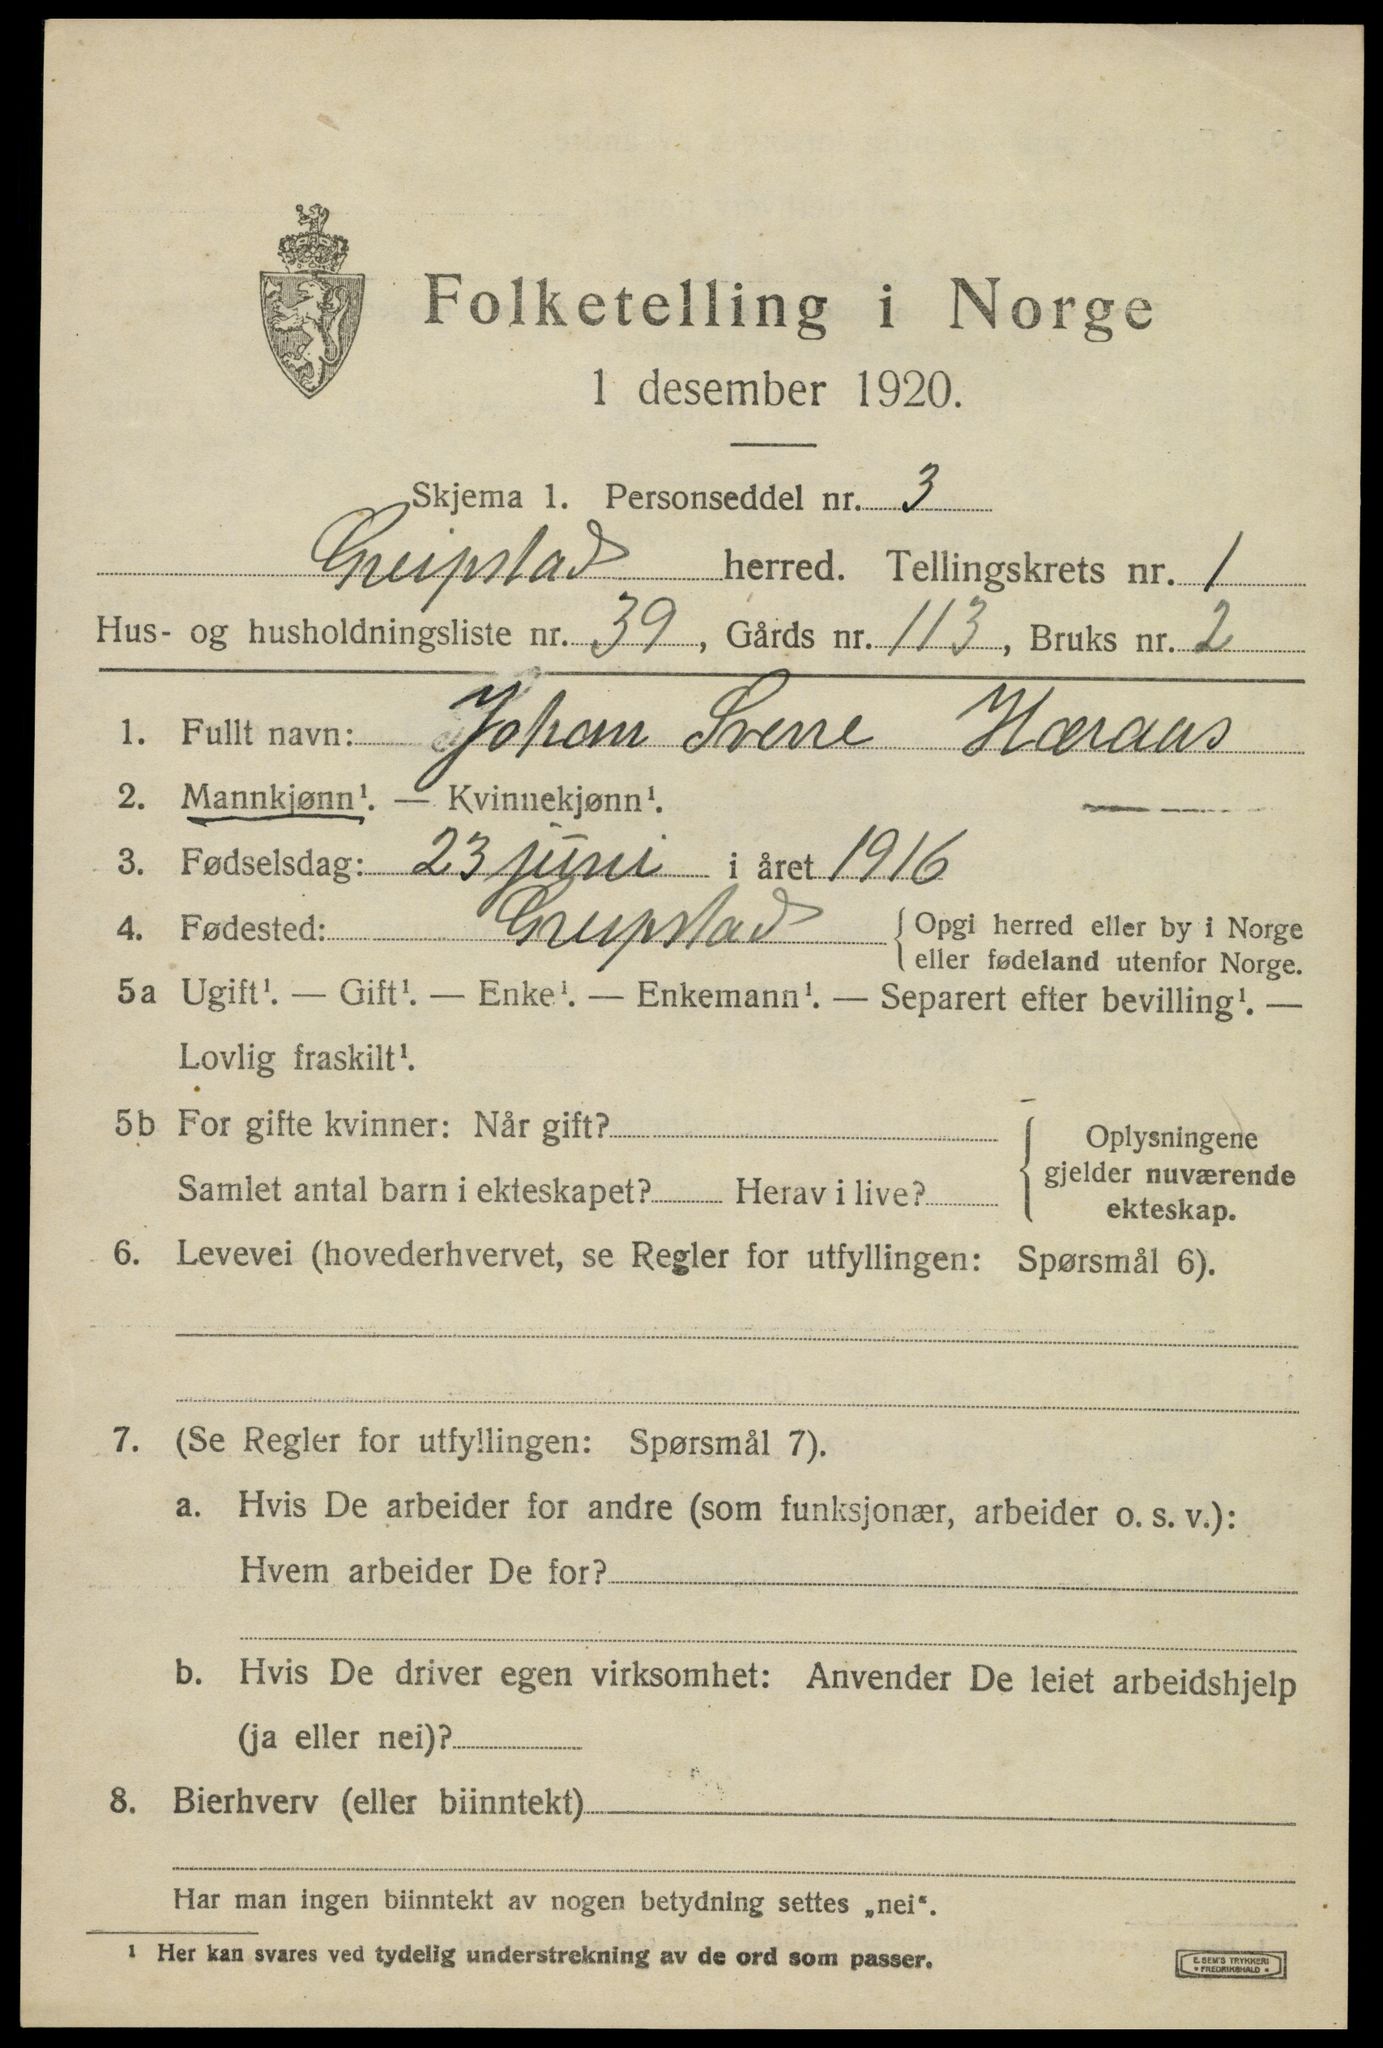 Folketelling i Norge
1 desember 1920.
Skjema 1. Personseddel nr. 3
Greipstad herred. Tellingskrets nr. 1
Hus- og husholdningsliste nr. 39, Gårds nr. 113, Bruks nr. 2
1. Fullt navn: Johan Sverre Høraas
2. Mannkjønn¹. — Kvinnekjønn¹.
3. Fødselsdag: 23 juni i året 1916
4. Fødested: Greipstad { Opgi herred eller by i Norge
eller fødeland utenfor Norge.
5a Ugift¹. — Gift¹. — Enke¹. — Enkemann¹. — Separert efter bevilling¹. —
Lovlig fraskilt¹.
5b For gifte kvinner: Når gift?
Samlet antal barn i ekteskapet? Herav i live?
{ Oplysningene
gjelder nuværende
ekteskap.
6. Levevei (hovederhvervet, se Regler for utfyllingen: Spørsmål 6).
7. (Se Regler for utfyllingen: Spørsmål 7).
a. Hvis De arbeider for andre (som funksjonær, arbeider o. s. v.):
Hvem arbeider De for?
b. Hvis De driver egen virksomhet: Anvender De leiet arbeidshjelp
(ja eller nei)?
8. Bierhverv (eller biinntekt)
Har man ingen biinntekt av nogen betydning settes „nei“.
¹ Her kan svares ved tydelig understrekning av de ord som passer.
E. SEM'S TRYKKERI
FREDRIKSHALD